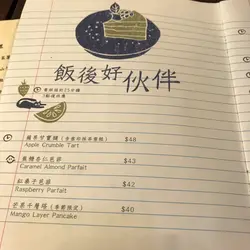 飯後好伙伴
蘋果甘寶撻 $48
Apple Crumble Tart
焦糖杏仁芭菲 $43
Caramel Almond Parfait
紅桑子芭菲 $42
Raspberry Parfait
芒果千層塔（季節限定） $40
Mango Layer Pancake